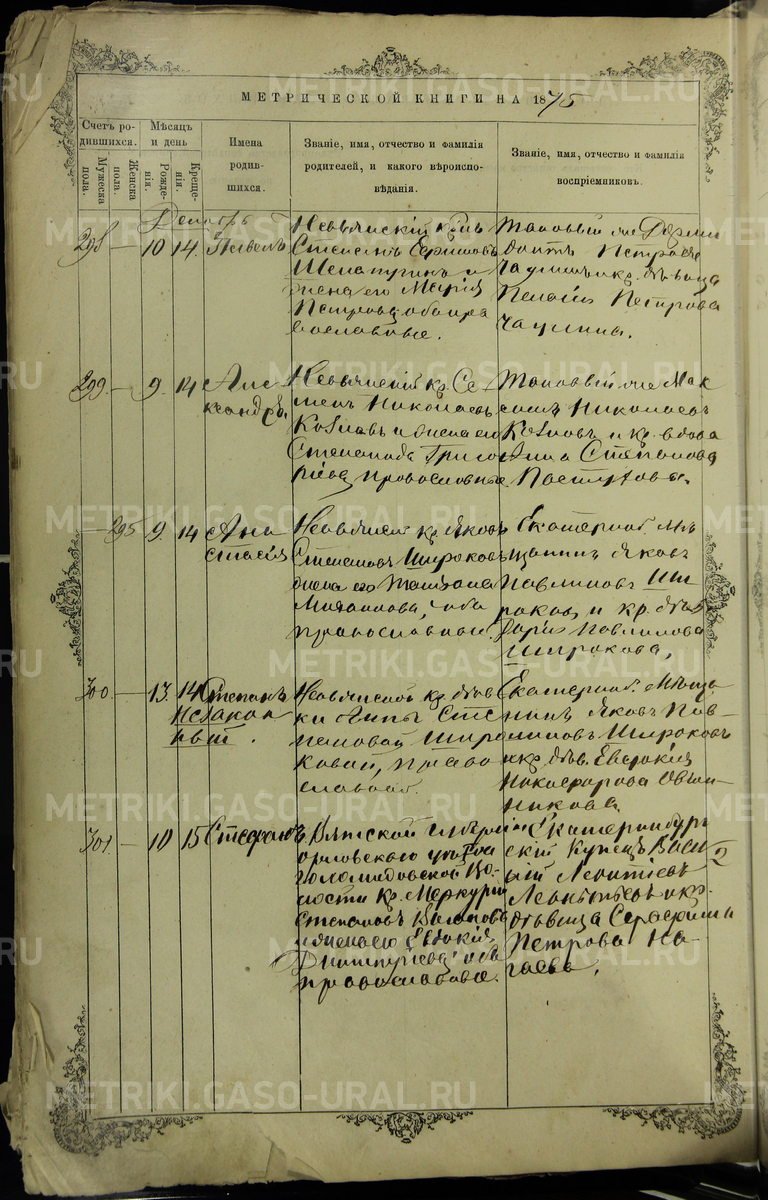 МЕТРИЧЕСКОЙ КНИГИ НА 1875
Счетъ ро-
дившихся.
Мѣсяцъ
и день
Мужеска
пола.
Женска
пола.
Рожде-
нія.
Креще-
нія.
Имена
родив-
шихся.
Званіе, имя, отчество и фамилія
родителей, и какого вѣроиспо-
вѣданія.
Званіе, имя, отчество и фамилія
воспріемниковъ.
Декабрь
298 — 10 14 Павелъ
Невьянскій кр-нъ
Степанъ
и
жена его Марія
Петровна оба пра
вославные.
Таковый же
Петровъ
кр. дѣвица
Пелагія Петрова
299 — 9 14 Але
ксандръ
Невьянскій кр. Се
менъ Николаевъ
и жена его
Степанида Григо
рьева православные
Таковый же Мак
симъ Николаевъ
и кр. вдова
Анна Степанова
Пастухова.
— 295 9 14 Ана
стасія
Невьянск кр. Яковъ
Степановъ Широковъ
жена его Татіана
оба
православные.
Екатеринб. мѣ
щанинъ Яковъ
Павлиновъ Ши
роковъ и кр. дѣв.
Дарія Павлинова
Широкова.
300 — 13 14 Степанъ
незакон
ный.
Невьянской кр. дѣв
ки Анны Сте
пановой Широ
ковой, право
славной.
Екатеринб. мѣща
нинъ Яковъ Пав-
линовъ Широковъ
и кр. дѣв. Евдокія
Никифорова Овчин-
никова
301 — 10 15 Стефанъ
Вятской губерніи
Орловскаго уѣзда
во-
лости кр. Меркурій
Степановъ
и жена его Евдокія
Димитріева оба
православные.
Екатеринбур
скій купецъ Васи
лій Леонтіевъ
и кр.
дѣвица Серафима
Петрова На-
гаева.
2
METRIKI.GASO-URAL.RU